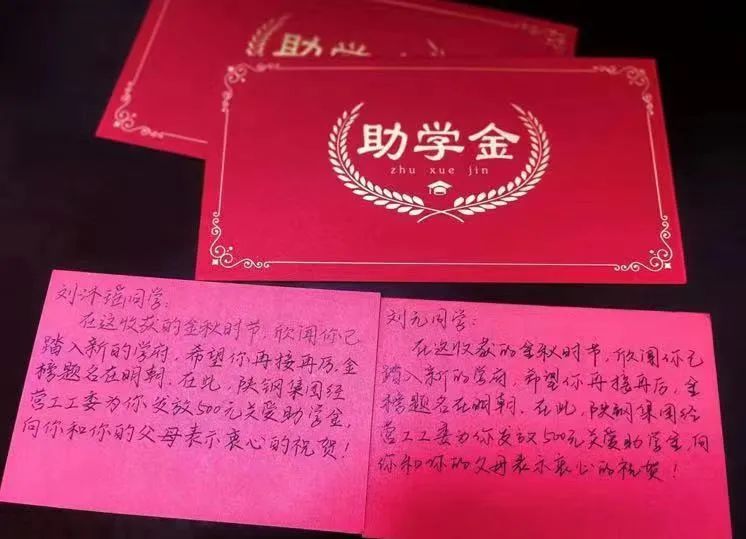 助学
助学金
zhu xue jin
刘沐瑶同学：
在这收获的金秋时节，欣闻你已
踏入新的学府，希望你再接再厉，金
榜题名在明朝。在此，陕钢集团经
营工工委为你发放500元关爱助学金，
向你和你的父母表示衷心的祝贺！
刘元同学：
在这收获的金秋时节，欣闻你已
踏入新的学府，希望你再接再厉，金
榜题名在明朝。在此，陕钢集团经
营工工委为你发放500元关爱助学金，向
你和你的父母表示衷心的祝贺！